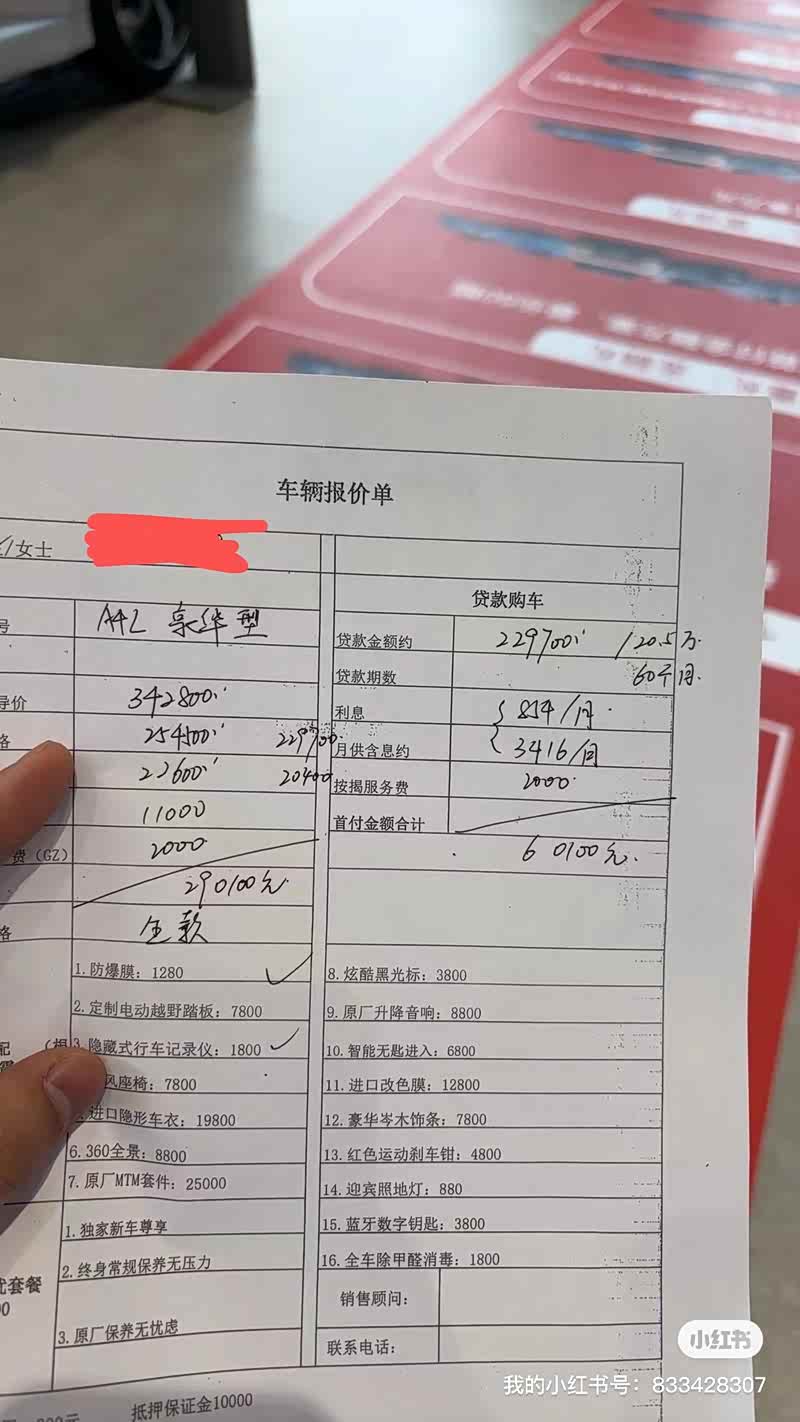 车辆报价单
/女士
贷款购车
号 A4L 豪华型
贷款金额约 229700 /20.5万
贷款期数 60个月
导价 342800
利息 854/月
格 254500 229700
月供含息约 3416/月
22600 20400
按揭服务费 2000
11000
首付金额合计
费(GZ) 2000
60100元
290100元
格 全款
1.防爆膜:1280
8.炫酷黑光标:3800
2.定制电动越野踏板:7800
9.原厂升降音响:8800
配 (相
3.隐藏式行车记录仪:1800
10.智能无匙进入:6800
风座椅:7800
11.进口改色膜:12800
进口隐形车衣:19800
12.豪华岑木饰条:7800
6.360全景:8800
13.红色运动刹车钳:4800
7.原厂MTM套件:25000
14.迎宾照地灯:880
1.独家新车尊享
15.蓝牙数字钥匙:3800
2.终身常规保养无压力
16.全车除甲醛消毒:1800
优套餐
3.原厂保养无忧虑
销售顾问:
联系电话:
抵押保证金10000
小红书
我的小红书号:833428307